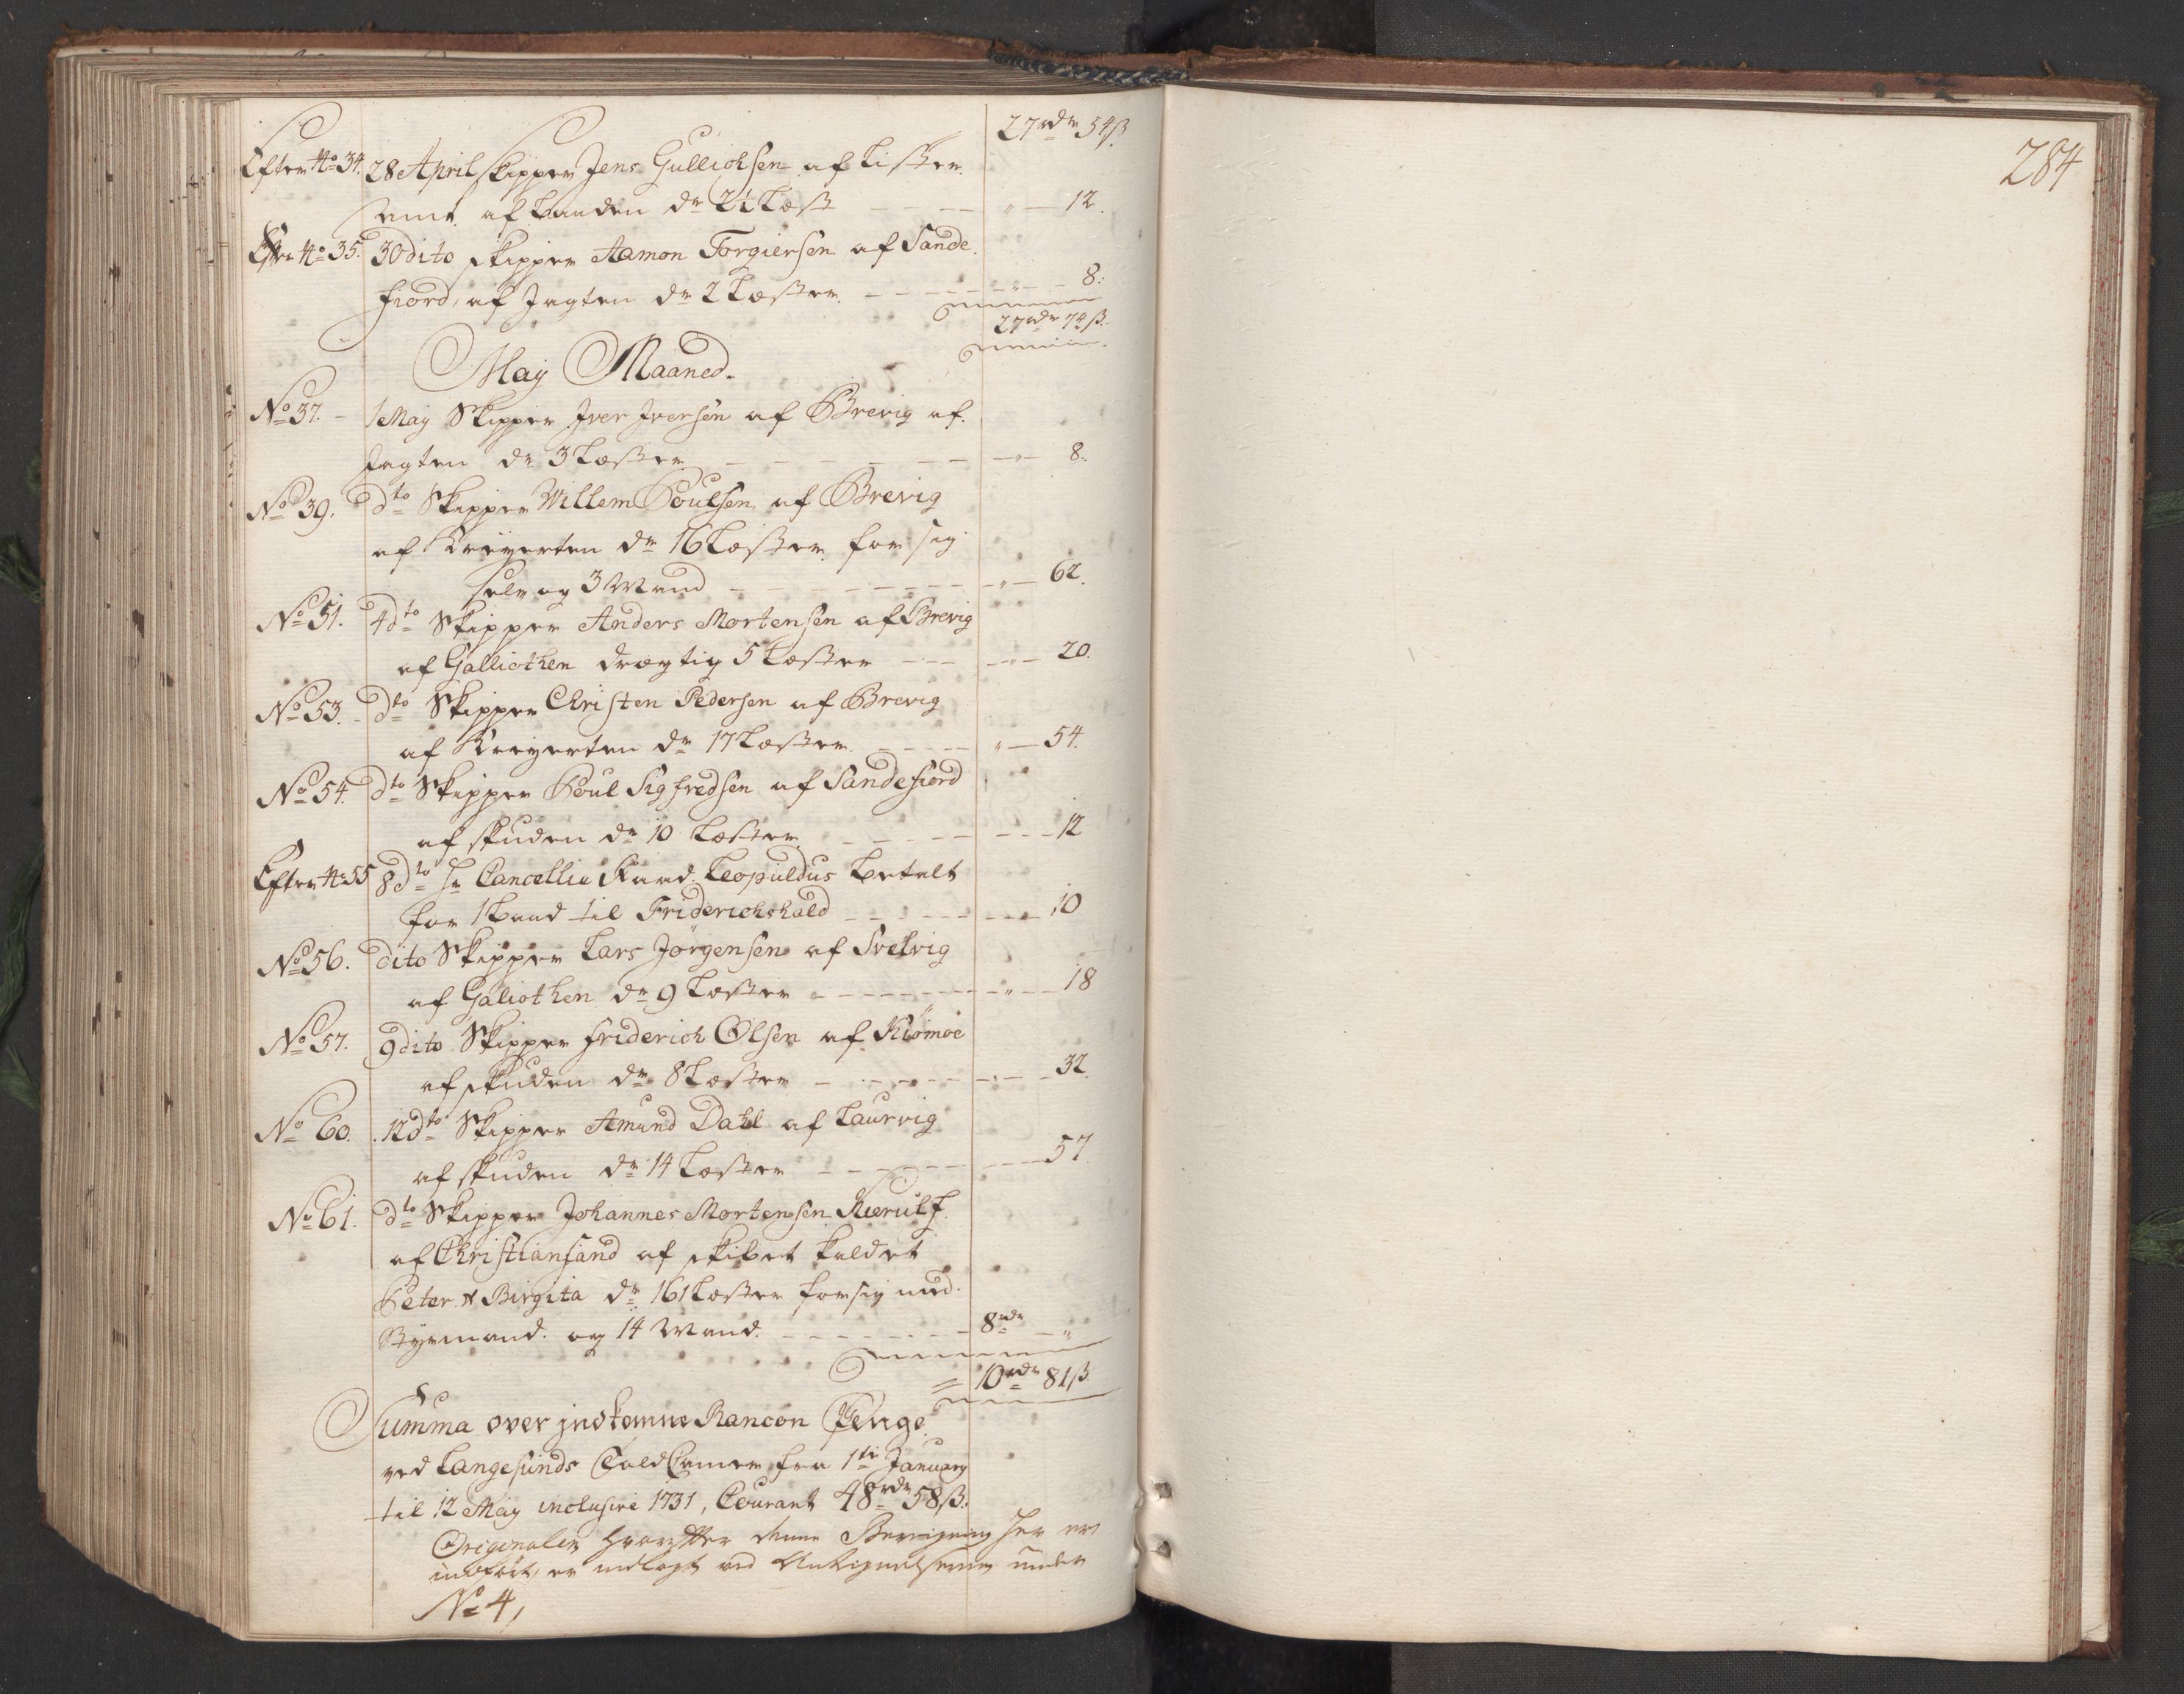 27 rdr 54 ß
Efter No 34. 28 April Skipper Jens Gullichsen af Lister
amt af baaden dr 2½ Læst - - - " - 12.
Efter No 35. 30 dito skipper Aamon Torgiersen af Sande
fiord, af Jagten dr 2 Læster. - - - " - 8:
27 rdr 74 ß.
May Maaned.
No 37. - 1 May Skipper Iver Iversen af Brevig af
Jagten dr 3 Læster - - - " - 8.
No 39. dto Skipper Willem Poulsen af Brevig
af Kreyerten dr 16 Læster for sig
selv og 3 Mand - - - " - 62.
No 51. 4 dto Skipper Anders Mortensen af Brevig
af Galliothen drægtig 5 Læster - - - " - 20.
No 53. - dto Skipper Christen Pedersen af Brevig
af Kreyerten dr 17 Læster. - - - " - 54.
No 54. dto Skipper Poul Sigfredsen af Sandefiord
af skuden dr 10 Læster - - - 12
Efter No 55 8 dto Hr Cancellie Raad Leopuldus betalt
for 1 baad til Friderichshald - - - 10
No 56. dito Skipper Lars Jørgensen af Svelvig
af Galiothen dr 9 Læster - - - " - 18
No 57. 9 dito Skipper Friderich Olsen af Kiømøe
af skuden dr 8 Læster - - - 32.
No 60. 12 dto Skipper Amund Dahl af Laurvig
af skuden dr 14 Læster - - - 57
No 61. dto Skipper Johannes Mortensen Kierulf
af Christiansand af skibet kaldet
Peter & Birgita dr 161 Læster for sig med
Styrmand. og 14 Mand. - - - 8 rdr - "
= 10 rdr 81 ß.
Summa over indkomne Rancon Penge
ved Langesunds Told Camer fra 1ste January
til 12 May inclusive 1731, Courant 48 rdr 58 ß.
Originalen hvorefter denne Beregning her er
indført, er indlagt ved Antegnelserne under
No 4,
284